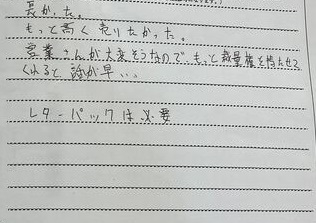 長かった。
もっと高く売りたかった。
営業さんが大変そうなので もっと裁量権を持たせて
くれると 話が早い。
レターパックは必要